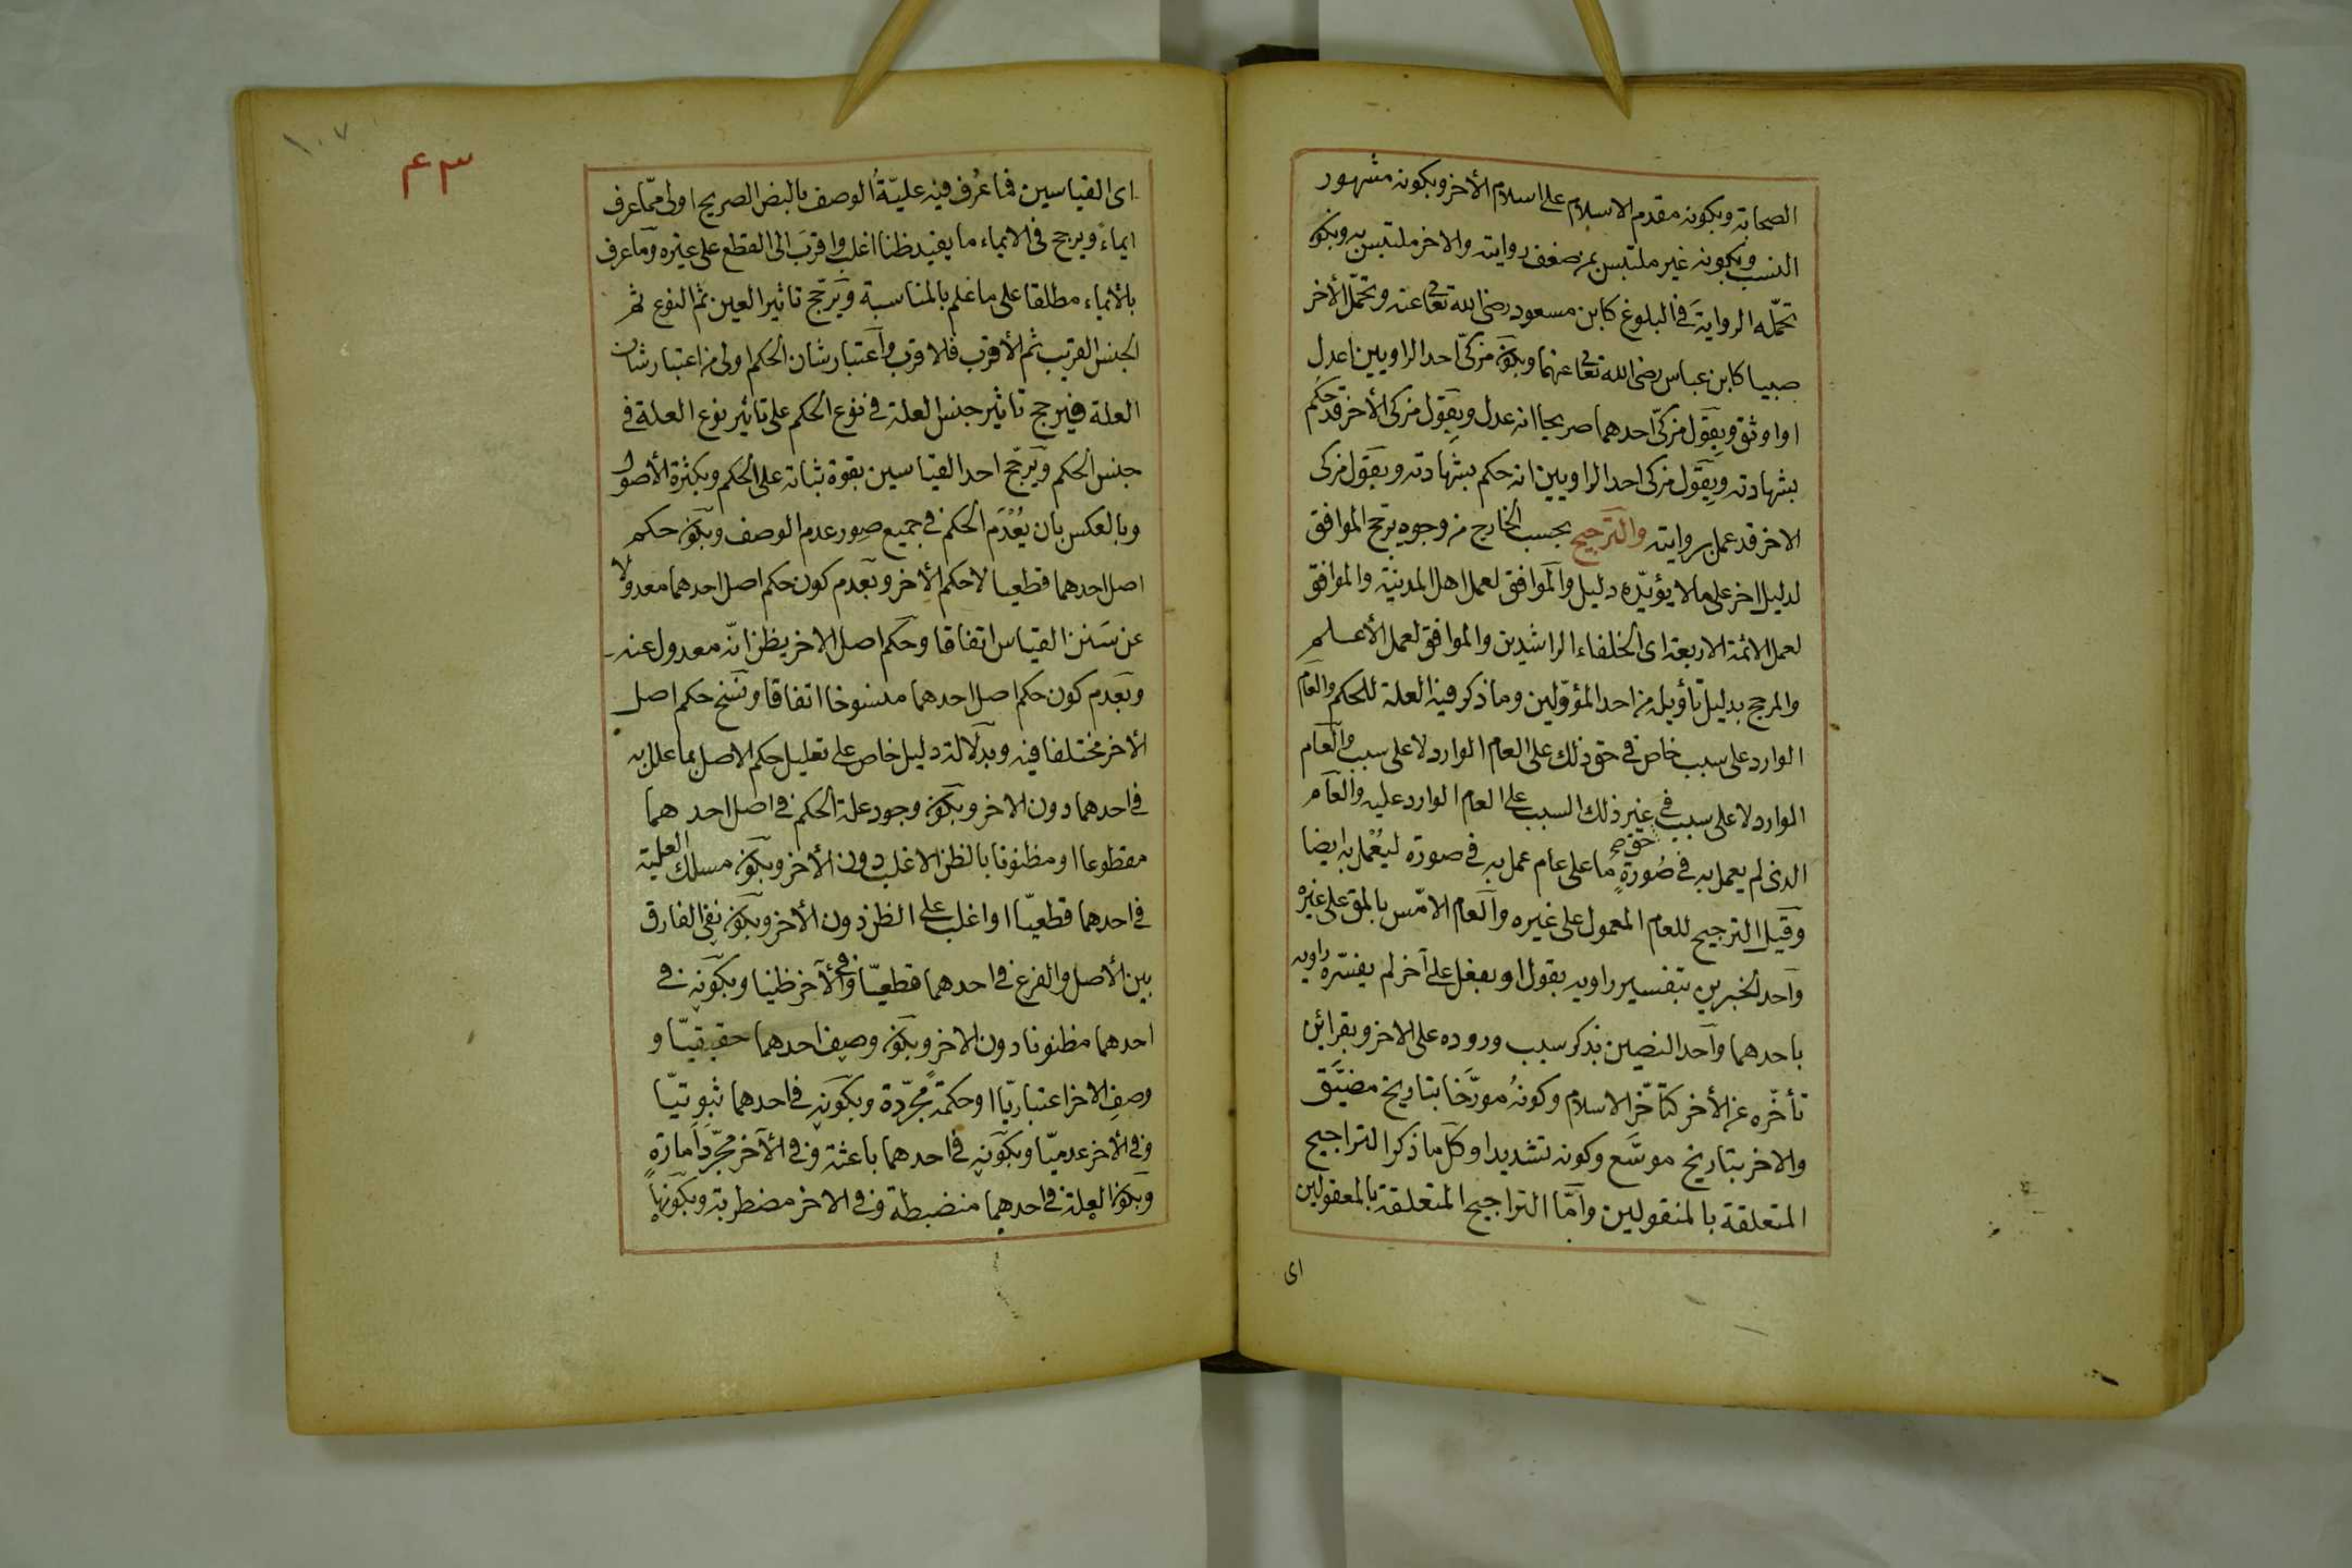 الصحابة وبكونه مقدم الاسلام على اسلام الأخر وبكونه مشهور
النسب وبكونه غير ملتبس بمن ضعف روايته والاخر ملتبس به وبكون
تحمّله الرواية في البلوغ كابن مسعود رضى الله تعالى عنه وتحمّل الأخر
صبيا كابن عباس رضى الله تعالى عنهما وبكون مزكّى احد الراويين اعدل
او اوثق وبقول مزكّى احدهما صريحا انه عدل وبقول مزكى الأخر قد حكم
بشهادته وبقول مزكى احد الراويين انه حكم بشهادته وبقول مزكى
الاخر قد عمل بروايته والترجيح بحسب الخارج من وجوه يرجح الموافق
لدليل اخر على ما لا يؤيّده دليل والموافق لعمل اهل المدينة والموافق
لعمل الائمة الاربعة اى الخلفاء الراشدين والموافق لعمل الأعلم
والمرجح بدليل تأويله من احد المؤوّلين وما ذكر فيه العلة للحكم والعام
الوارد على سبب خاص في حق ذلك على العام الوارد لا على سبب والعام
الوارد لا على سبب في حق غير ذلك السبب على العام الوارد عليه والعام
الذى لم يعمل به في صورةٍ ما على عام عمل به في صورة ليُعْمل به ايضا
وقيل الترجيح للعام المعمول على غيره والعام الامّس بالمق على غيره
واحد الخبرين بتفسير راويه بقول او بفعل على آخر لم يفسّره راويه
باحدهما واحد النصين بذكر سبب وروده على الاخر وبقرائن
تأخّره عن الأخر كتأخّر الاسلام وكونُه مورّخا بتاريخ مضيَّق
والاخر بتاريخ موسَّع وكونه تشديدا وكل ما ذكر التراجيح
المتعلقة بالمنقولين وامّا التراجيح المتعلقة بالمعقولين
اى
١٠٧
٤٣
اى القياسين فما عُرف فيه عليّةُ الوصف بالنص الصريح اولى ممّا عرف
ايماءً ويرجح في الايماء ما يفيد ظنا اغلب واقرب الى القطع على غيره وما عرف
بالأيماء مطلقا على ما علم بالمناسبة ويرجّح تاثير العين ثم النوع ثم
الجنس القريب ثم الأقرب فالاقرب واعتبار شان الحكم اولى من اعتبار شان
العلة فيرجح تاثير جنس العلة في نوع الحكم على تاثير نوع العلة في
جنس الحكم ويرجّح احد القياسين بقوة ثباته على الحكم وبكثرة الأصول
وبالعكس بان يُعْدَم الحكم في جميع صور عدم الوصف وبكون حكم
اصل احدهما قطعيا لا حكم الأخر وبعدم كون حكم اصل احدهما معدولا
عن سَنن القياس اتفاقا وحكم اصل الاخر يظن انّه معدول عنه
وبعدم كون حكم اصل احدهما منسوخا اتفاقا ونسخ حكم اصل
الأخر مختلفا فيه وبدلالة دليل خاص على تعليل حكم الاصل بما علل به
في احدهما دون الاخر وبكون وجود علة الحكم في اصل احدهما
مقطوعا او مظنونا بالظن الاغلب دون الأخر وبكون مسلك العلية
في احدهما قطعيّا او اغلب على الظن دون الأخر وبكون نفى الفارق
بين الأصل والفرع في احدهما قطعيّا وفي الآخر ظنيا وبكونه في
احدهما مظنونا دون الاخر وبكون وصف احدهما حقيقيّا و
وصف الاخر اعتباريّا او حكمةً مجرّدة وبكونه في احدهما ثبوتيّا
وفي الأخر عدميّا وبكونه في احدهما باعثة وفي الآخر مجرّد امارةٍ
وبكون العلة في احدهما منضبطة وفي الاخر مضطربة وبكونها